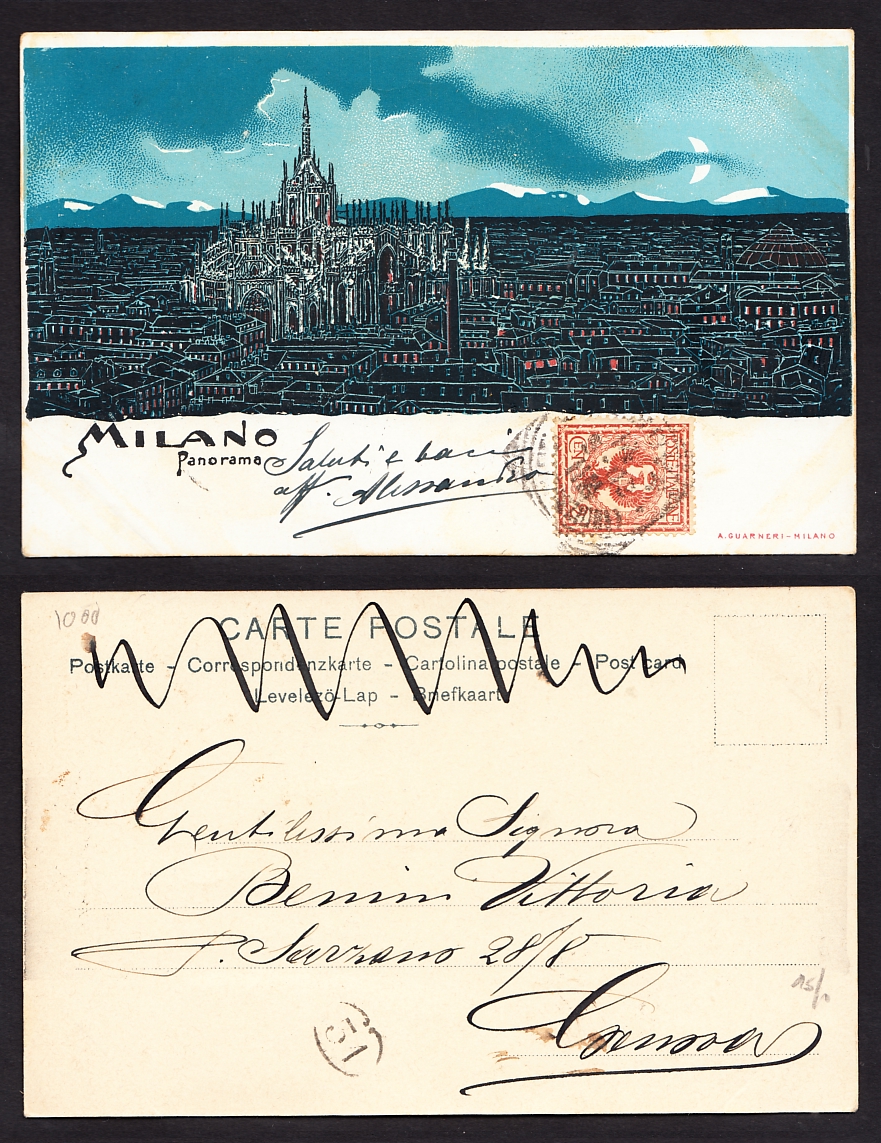 MILANO
Panorama
Saluti e baci
aff. Alessandro
POSTE ITALIANE
CENT
A. GUARNERI – MILANO
1000
CARTE POSTALE
Postkarte – Correspondenzkarte – Cartolina postale – Post card
Levelező-Lap – Briefkaart
Gentilissima Signora
Benini Vittoria
P. Sarzano 28/8
Genova
51
15/